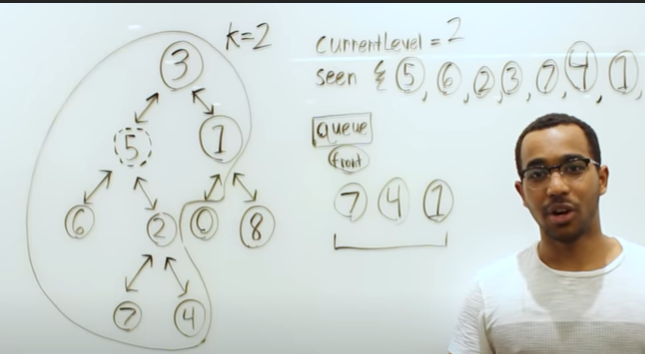 k=2
3
5 1
6 2 0 8
7 4
currentLevel = 2
seen { 5, 6, 2, 3, 7, 4, 1,
queue
front
7 4 1